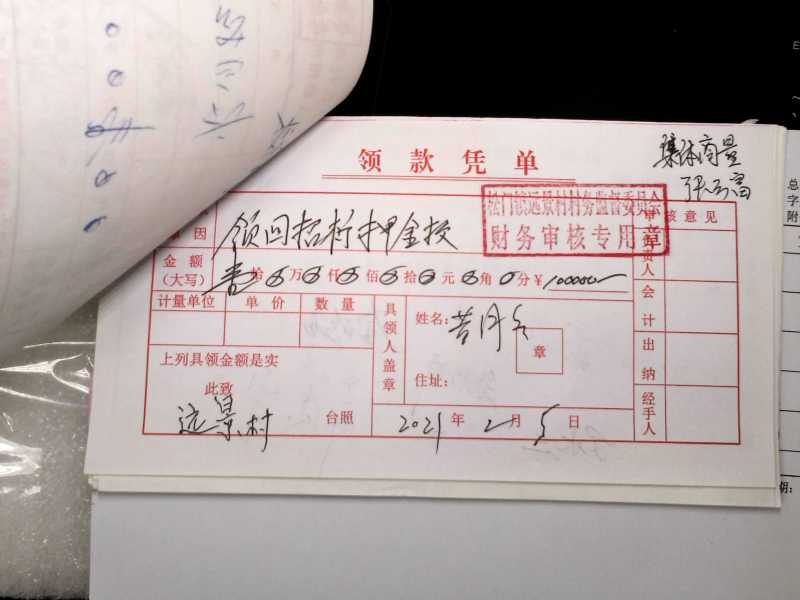 领款凭单
集体商量
松门镇远景村村务监督委员会
财务审核专用章
因
领回招标押金款
审核意见
金额
(大写)
壹拾0万0仟0佰0拾0元0角0分¥100000
负责人
计量单位 单价 数量
具领人盖章
姓名:
章
住址:
会计
出纳
经手人
上列具领金额是实
此致
远景村 台照
2021年2月5日